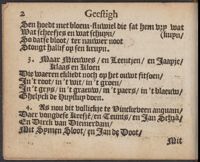 2 Geestigh
Een hoedt met bloem-fluweel die sat hem vry wat
Wat scheefjes en wat schuyn/ (kruyn/
So datse bloot/ ter nauwer noot
Stongt halif op sen kruyn.
3. Maar Mieuwes/ en Leentjen/ en Jaapje/
Klaas en Kloen
Die waeren ekliedt noch op het outvt fitsoen/
In 't root/ in 't wit/ in 't groen/
In 't grijs/ in 't grauw/ in 't paers/ in 't blaeuw/
Ghelijck de Huysluy doen.
4. As nou dit vollickje te Vinckeveen anquam/
Daer vongdese Keesje/ en Teunis/ en Jan Schram/
En Dirck van Diemerdam/
Mit Symen Sloot/ en Jan de Doot/
Mit